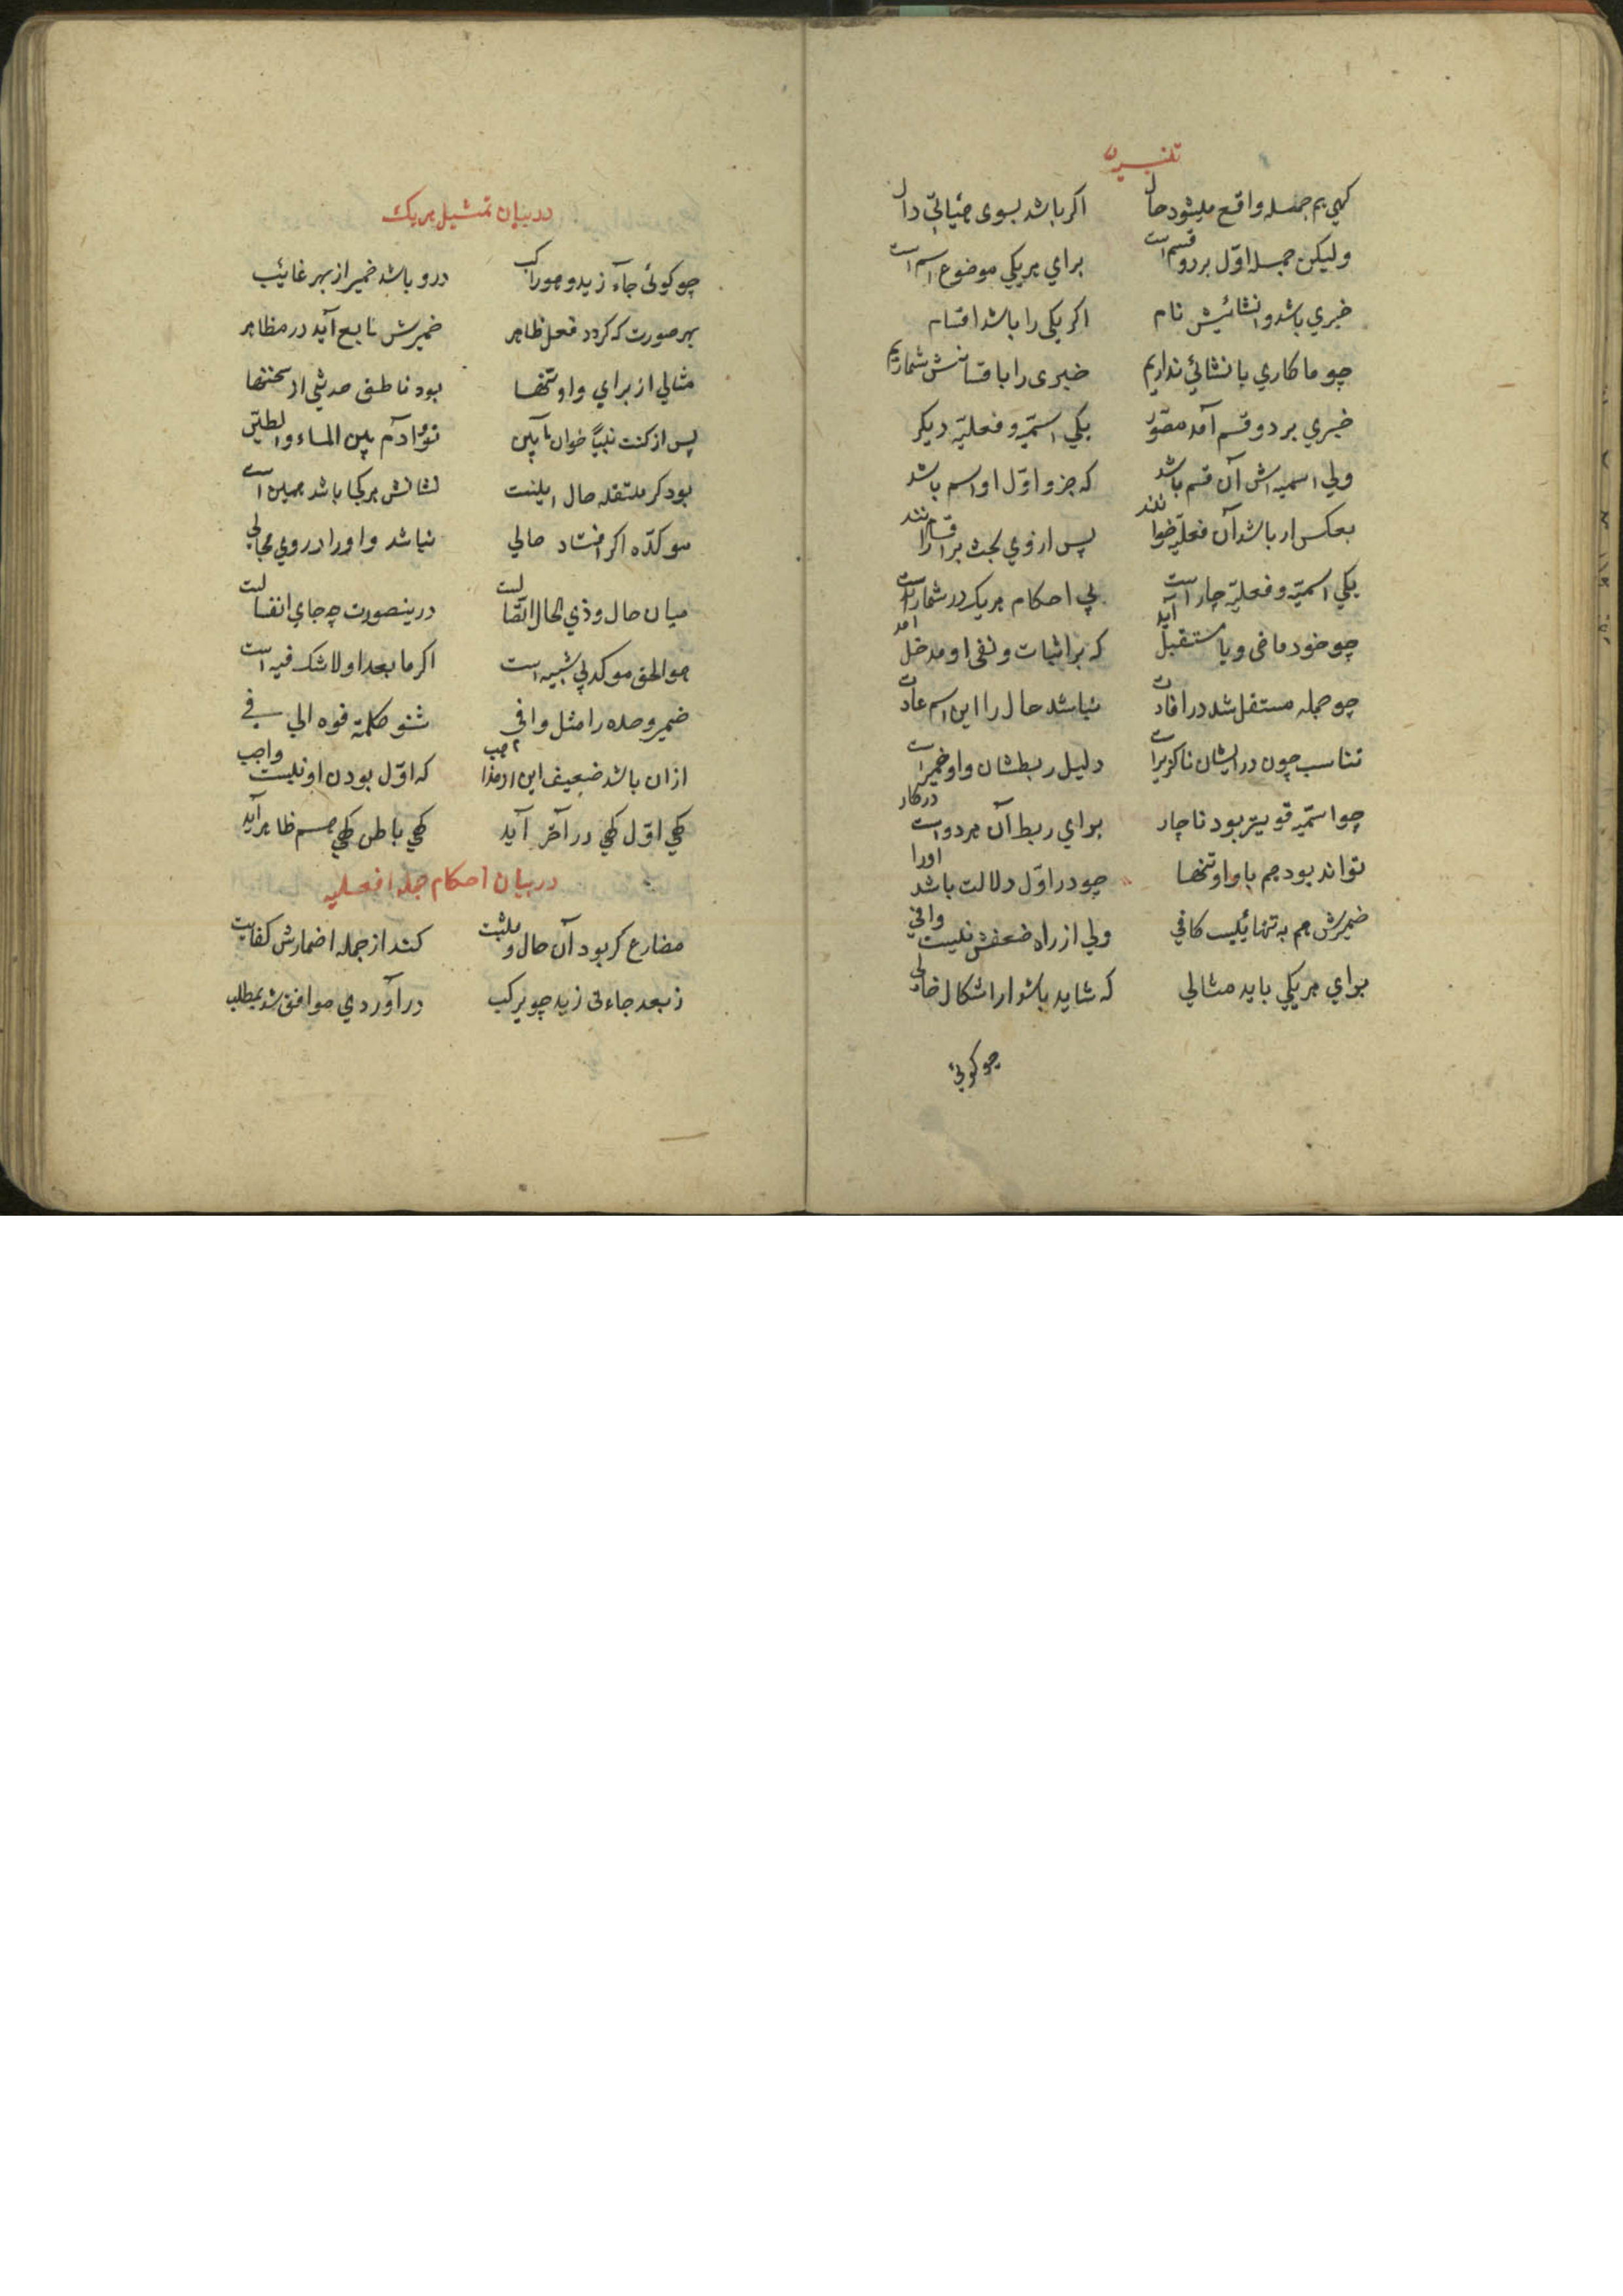 تفسیر
کهي هم جمله واقع میشود حال اکر باشد بسوی هیئاتي دال
ولیکن جمله اوّل بر دو قسم است براي هر یکي موضوع اسم است
خبري باشد و انشائیش نام اکر یکی را باشد اقسام
چو ما کاري بانشائي نداریم خبری را باقسامش شماریم
خبري بر دو قسم آمد مصوّر یکي اسمیّه و فعلیّه دیکر
ولي اسمیه اش آن قسم باشد که جزو اوّل او اسم باشد
بعکس ار باشد آن فعلیّه خوانند پس از وي بحث بر اقسام رانند
یکي اسمیّه و فعلیّه چار است پي احکام هر یک در شمار است
چو خود ماضی و یا مستقبل آید که بر اثبات و نفی او مدخل آمد
چو جمله مستقل شد در افادت نباشد حال را این اسم عادت
تناسب چون در ایشان ناکزیر است دلیل ربطشان واو ضمیر است
چو اسمیّه قویتر بود ناچار براي ربط آن هر دو است درکار
تواند بود هم با واو تنها چو در اوّل دلالت باشد اورا
ضمیرش هم به تنها نیست کافي ولي از راه ضعفش نیست وافي
براي هر یکي باید مثالي که شاید باشد از اشکال خالي
چو کوئي
در بیان تمثیل هر یک
چو کوئی جاء زید و هو راکب درو باشد ضمیر از بهر غایب
بهر صورت که کردد فعل ظاهر ضمیرش تابع آید در مظاهر
مثالي از براي واو تنها بود ناطق حدیثي از سخنها
پس از کنت نبیّاً خوان تا بین تو و آدم بین الماء والطین
بود کر منتقله حال اینست نشانش هر کجا باشد همین است
موکدّه اکر افتاد حالي نباشد واو را در روي مجالي
میان حال و ذي الحال اتصالیت درینصورت چه جاي انفسالیت
هو الحق موکد بي شبیه است اکر ما بعد او لا شک فیه است
ضمیر وحده را مثل وافي شنو کلمته فوه الي في
ازان باشد ضعیف این که اوّل بودن او نیست واجب
کهي اوّل کهي در آخر آید کهي باطن کهي هم ظاهر آید
در بیان احکام جمله فعلیه
مضارع کر بود آن حال و مثبت کند از جمله اضمارش کفایت
ز بعد جاءنی زید چو یرکب در آوردي موافق شد بمطلب